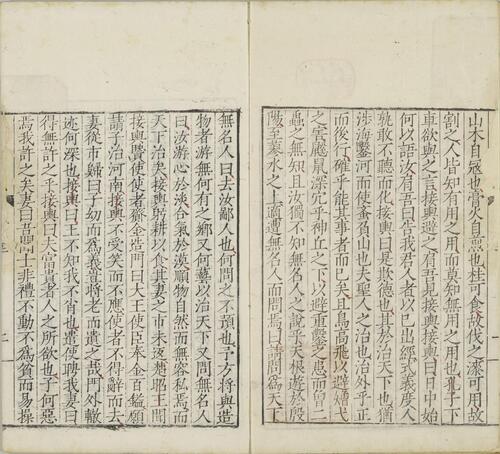 山木自寇也膏火自煎也桂可食故伐之漆可用故
割之人皆知有用之用而莫知無用之用也孔子下
車欲與之言接輿避之肩吾見接輿接輿曰日中始
何以語汝肩吾曰告我君人者以已出經式義度人
孰敢不聽而化接輿曰是欺德也其於治天下也猶
涉海鑿河而使蚉負山也夫聖人之治也治外乎正
而後行確乎能其事者而已矣且鳥高飛以避矰弋
之害鼷鼠深穴乎神丘之下以避熏鑿之患而曾二
蟲之無知且汝獨不知無名人之說乎天根遊於殷
陽至蓼水之上適遭無名人而問焉曰請問為天下
無名人曰去汝鄙人也何問之不預也予方將與造
物者游無何有之鄉又何藝以治天下又問無名人
曰汝游心於淡合氣於漠順物自然而無容私焉而
天下治矣接輿躬耕以食其妻之市未返楚昭王聞
接輿賢使使者齎金造門曰大王使臣奉金百鎰願
請子治河南接輿不受笑而不應使者不得辭而去
妻從市來曰子幼而為義豈將老而遺之哉門外轍
迹何深也接輿曰王不知我不肖也遣使聘我妻曰
得無許之乎接輿曰夫富貴者人之所欲也子何惡
焉我許之矣妻曰吾聞士非禮不動不為貧而易操